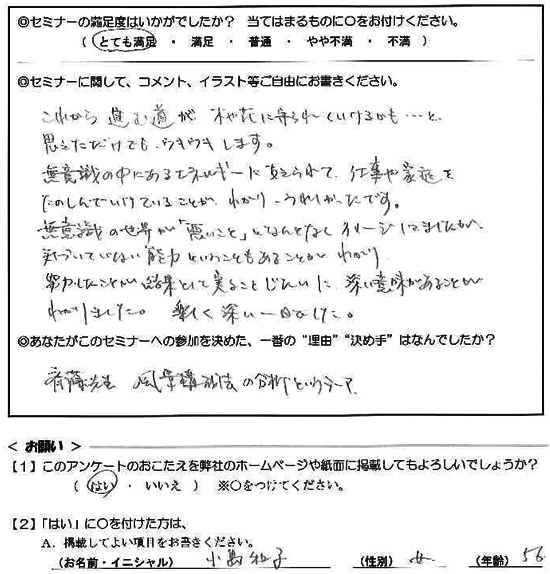 ◎セミナーの満足度はいかがでしたか？ 当てはまるものに○をお付けください。
（ とても満足 ・ 満足 ・ 普通 ・ やや不満 ・ 不満 ）
◎セミナーに関して、コメント、イラスト等ご自由にお書きください。
これから 進む道が 木や花に守られていけるかも…と、
思えただけでも、うきうきします。
無意識の中にあるエネルギーに支えられて、仕事や家庭を
たのしんでいけていることが、わかり、うれしかったです。
無意識の世界が「悪いこと」となんとなくイメージしてましたが、
気づいていない能力というこもあることが わかり
努力したことが 結果として実ることじたいに、深い意味があることが
わかりました。 楽しく深い一日でした。
◎あなたがこのセミナーへの参加を決めた、一番の“理由”“決め手”はなんでしたか？
斉藤先生 風景構成法の分析というテーマ
＜ お願い ＞
【1】このアンケートのおこたえを弊社のホームページや紙面に掲載してもよろしいでしょうか？
（ はい ・ いいえ ） ※○をつけてください。
【2】「はい」に○を付けた方は、
A．掲載してよい項目をお書きください。
（お名前・イニシャル） 小島 和子 （性別） 女 （年齢） 56